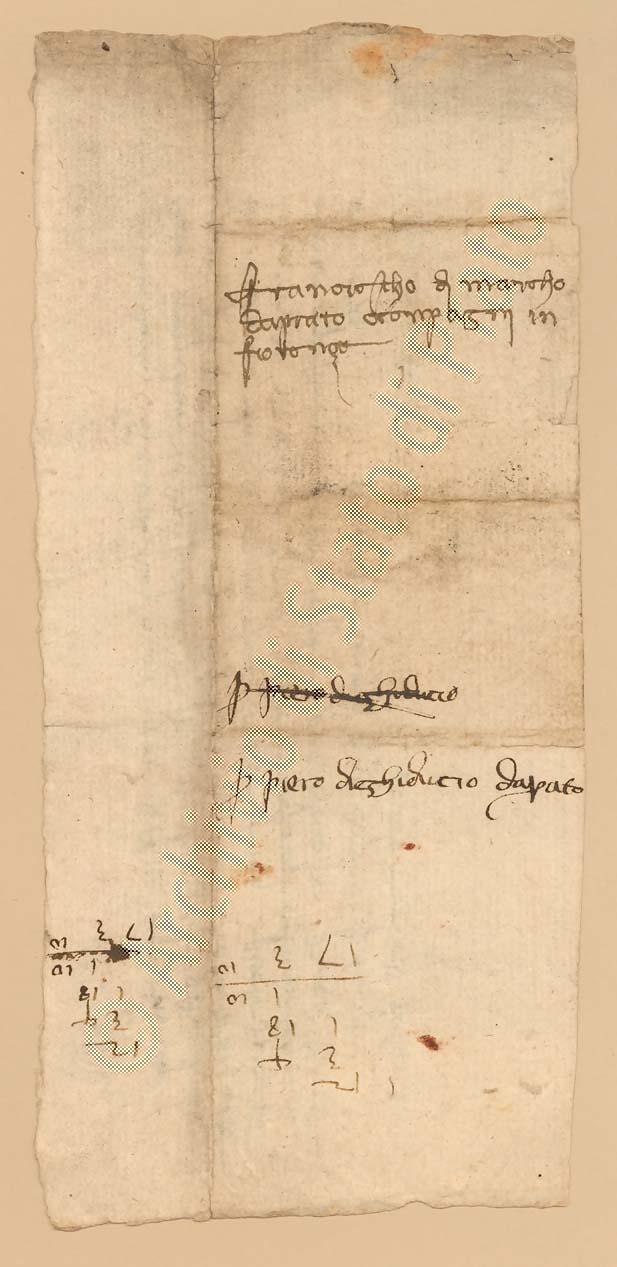 Franciescho di marcho
daprato e compagni in
firenze
p piero deghiducio
p piero deghiducio daprato
© Archivio di Stato di Prato